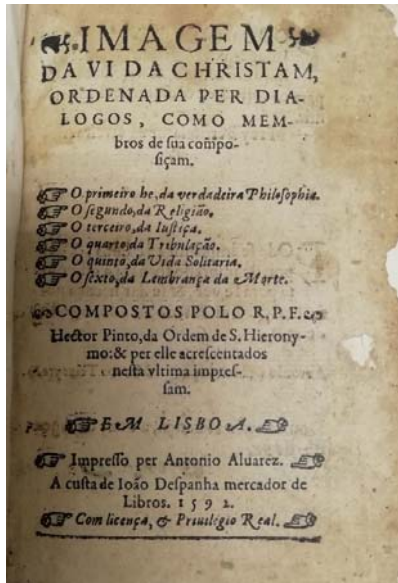 IMAGEM
DA VIDA CHRISTAM,
ORDENADA PER DIA-
LOGOS, COMO MEM-
bros de sua compo-
siçam.
O primeiro he, da verdadeira Philosophia.
O segundo, da Religião.
O terceiro, da Iustiça.
O quarto, da Tribulação.
O quinto, da Vida Solitaria.
O sexto, da Lembrança da Morte.
COMPOSTOS POLO R. P. F.
Hector Pinto, da Ordem de S. Hierony-
mo: & per elle acrescentados
nesta vltima impres-
sam.
EM LISBOA.
Impresso per Antonio Aluarez.
A custa de Ioão Despanha mercador de
Libros. 1592.
Com licença, & Priuilegio Real.